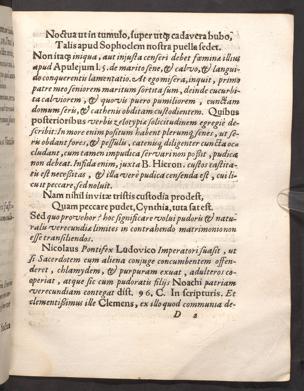 Noctua ut in tumulo, super utq; cadavera bubo,
Talis apud Sophoclem nostra puella sedet.
Non itaq; iniqua, aut injusta censeri debet fæmina illius
apud Apulejum l. 5. de marito sene, & calvo, & langui-
do conquerentis lamentatio. At ego misera, inquit, primo
patre meo seniorem maritum sortita sum, deinde cucurbi-
ta calviorem, & quovis puero pumiliorem, cunctam
domum seris, & cathenis obditam custodientem. Quibus
posterioribus verbis zelotypiæ solicitudinem egregiè de-
scribit: In more enim positum habent plerumq; senes, ut se-
ris obdant fores, & pessulis, catenisq; diligenter cuncta oc-
cludant, cum tamen impudica servari non possit, pudica
non debeat. Infida enim, juxta B. Hieron. custos castita-
tis est necessitas, & illa verè pudica censenda est, cui li-
cuit peccare, sed noluit.
Nam nihil invitæ tristis custodia prodest,
Quam peccare pudet, Cynthia, tuta sat est.
Sed quo provehor? hoc significare volui pudoris & natu-
ralis verecundiæ limites in contrahendo matrimonio non
esse transiliendos.
Nicolaus Pontifex Ludovico Imperatori suasit, ut
si Sacerdotem cum aliena conjuge concumbentem offen-
deret, chlamydem, & purpuram exuat, adulteros co-
operiat, atque sic cum pudoratis filijs Noachi patriam
verecundiam contegat dist. 96. C. In scripturis. Et
clementissimus ille Clemens, ex illo quod communia de-
D 2